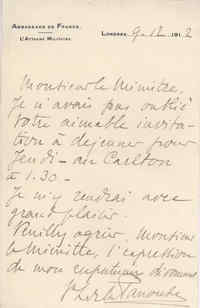 Ambassade de France.
L'Attaché Militaire.
Londres, 9-12 1912
Monsieur le Ministre,
Je n'avais pas oublié
votre aimable invita-
tion à déjeuner pour
Jeudi - au Carlton
à 1.30 -
Je m'y rendrai avec
grand plaisir.
Veuillez agréer, Monsieur
le Ministre, l'expression
de mon respectueux dévouement